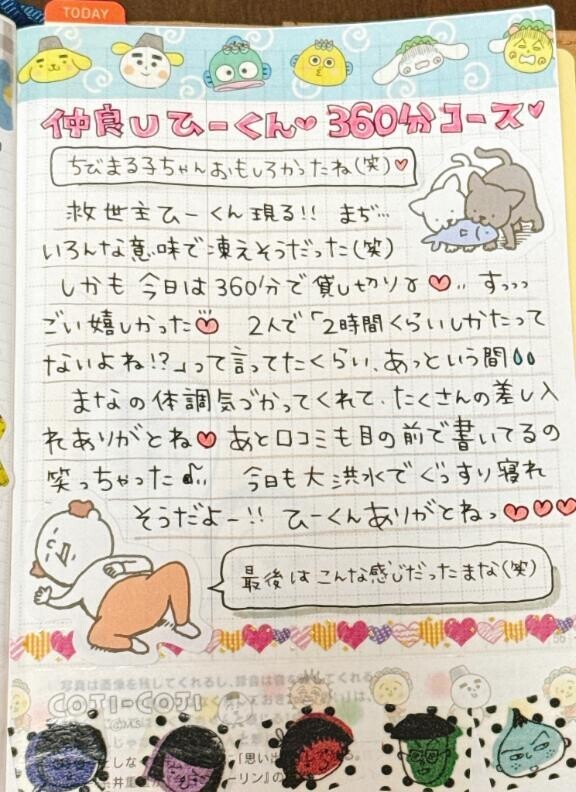 TODAY
仲良しひーくん♡ 360分コース♡
ちびまる子ちゃんおもしろかったね(笑)♡
救世主ひーくん現る!! まぢ…
いろんな意味で凍えそうだった(笑)
しかも今日は360分で貸し切り♡‥ すっっっ
ごい嬉しかった♡ 2人で「2時間くらいしかたって
ないよね!?」って言ってたくらい、あっという間
まなの体調気づかってくれて、たくさんの差し入
れありがとね♡ あと口コミも目の前で書いてるの
笑っちゃった♪‥ 今日も大洪水でぐっすり寝れ
そうだよー!! ひーくんありがとねっ♡♡♡
最後はこんな感じだったまな(笑)
写真は画像を残してくれるし、録音は音を残してくれる
COJI-COJI